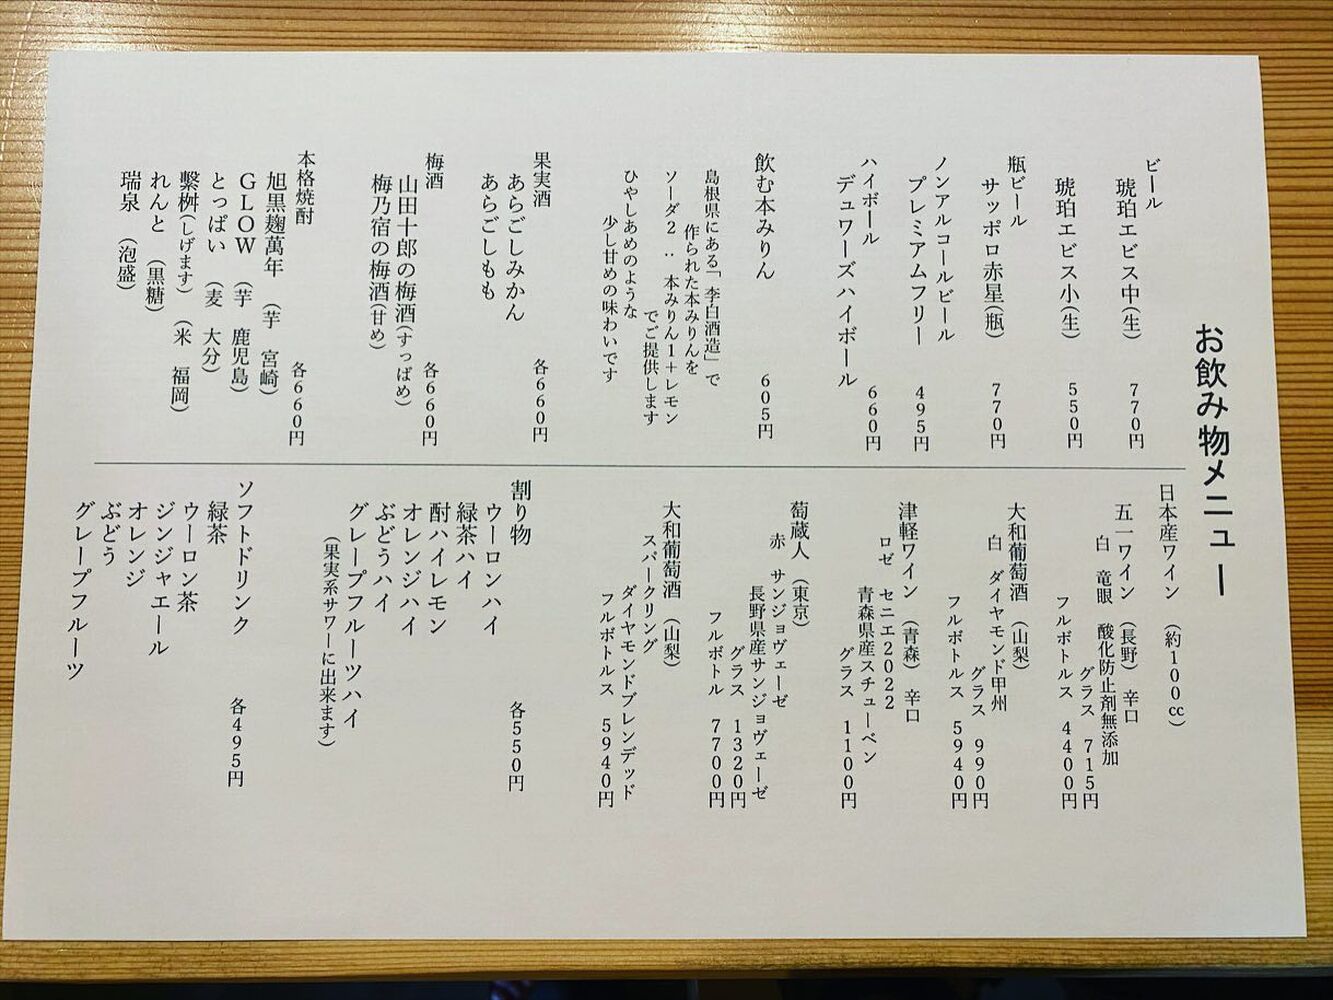 お飲み物メニュー
ビール
琥珀エビス中(生) 770円
琥珀エビス小(生) 550円
瓶ビール
サッポロ赤星(瓶) 770円
ノンアルコールビール
プレミアムフリー 495円
ハイボール
デュワーズハイボール 660円
飲む本みりん 605円
島根県にある「李白酒造」で
作られた本みりんを
ソーダ2：本みりん1＋レモン
でご提供します
ひやしあめのような
少し甘めの味わいです
果実酒 各660円
あらごしみかん
あらごしもも
梅酒 各660円
山田十郎の梅酒(すっぱめ)
梅乃宿の梅酒(甘め)
本格焼酎 各660円
旭黒麹萬年 (芋 宮崎)
GLOW (芋 鹿児島)
とっぱい (麦 大分)
繫桝(しげます) (米 福岡)
れんと (黒糖)
瑞泉 (泡盛)
日本産ワイン (約100cc)
五一ワイン (長野) 辛口
白 竜眼 酸化防止剤無添加
グラス 715円
フルボトルス 4400円
大和葡萄酒 (山梨)
白 ダイヤモンド甲州
グラス 990円
フルボトルス 5940円
津軽ワイン (青森) 辛口
ロゼ セニエ2022
青森県産スチューベン
グラス 1100円
萄蔵人 (東京)
赤 サンジョヴェーゼ
長野県産サンジョヴェーゼ
グラス 1320円
フルボトル 7700円
大和葡萄酒 (山梨)
スパークリング
ダイヤモンドブレンデッド
フルボトルス 5940円
割り物 各550円
ウーロンハイ
緑茶ハイ
酎ハイレモン
オレンジハイ
ぶどうハイ
グレープフルーツハイ
(果実系サワーに出来ます)
ソフトドリンク 各495円
緑茶
ウーロン茶
ジンジャエール
オレンジ
ぶどう
グレープフルーツ